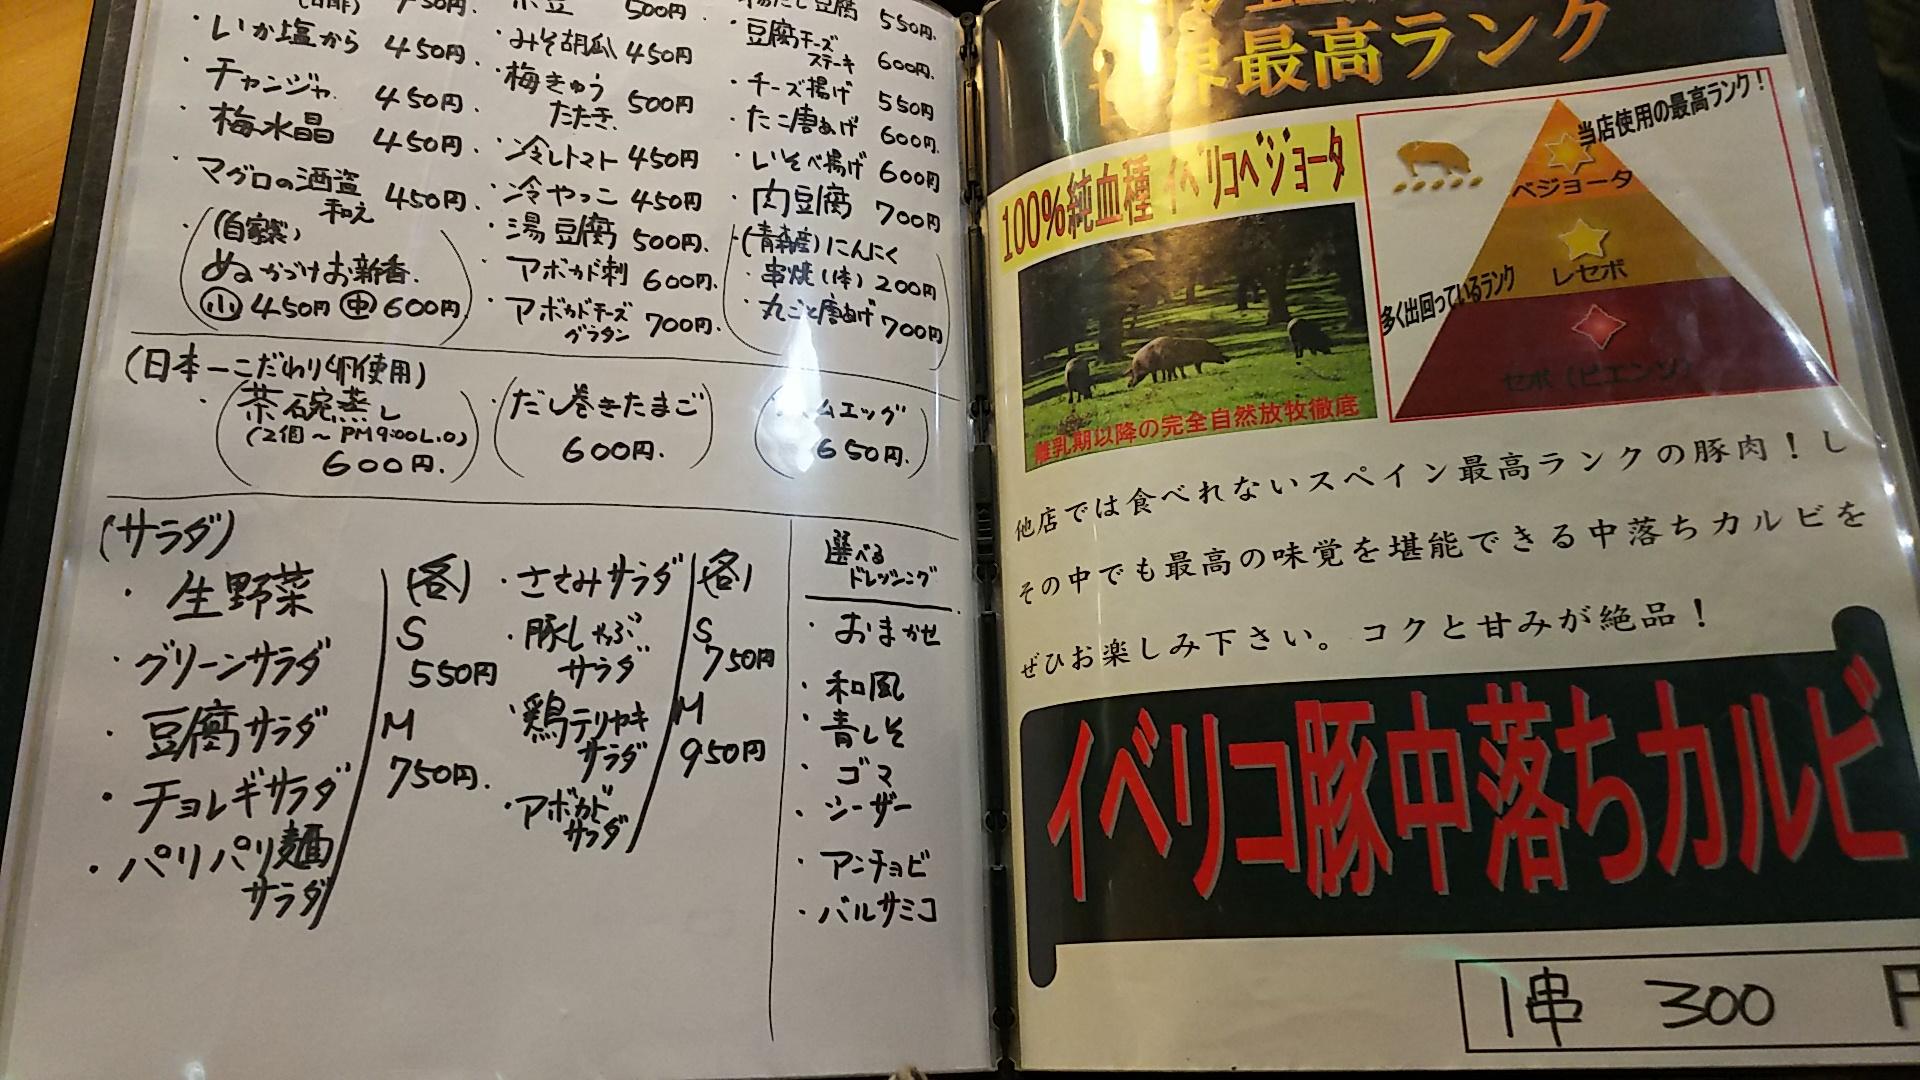 750円.
500円.
豆腐 550円.
・いか塩から 450円.
・チャンジャ 450円.
・梅水晶 450円.
・マグロの酒盗
和え 450円.
・(自家製)
ぬかづけお新香.
小 450円 中 600円
・みそ胡瓜 450円
・梅きゅう
たたき. 500円
・冷しトマト 450円
・冷やっこ 450円
・湯豆腐 500円.
・アボカド刺 600円.
・アボカドチーズ
グラタン 700円.
・豆腐チーズ
ステーキ 600円.
・チーズ揚げ 550円
・たこ唐あげ 600円.
・いそべ揚げ 600円
・肉豆腐 700円
・(青森産)にんにく
・串焼(1本) 200円
・丸ごと唐あげ 700円
(日本一こだわり卵使用)
・茶碗蒸し
(2個〜PM9:00L.O)
600円.
・だし巻きたまご
600円.
ムエッグ
650円.
(サラダ)
・生野菜
・グリーンサラダ
・豆腐サラダ
・チョレギサラダ
・パリパリ麺
サラダ
(各)
S
550円
M
750円.
・ささみサラダ
・豚しゃぶ
サラダ
・鶏テリヤキ
サラダ
・アボカド
サラダ
(各)
S
750円
M
950円
選べる
ドレッシング
・おまかせ
・和風
・青しそ
・ゴマ
・シーザー
・アンチョビ
・バルサミコ
界最高ランク
100%純血種 イベリコベジョータ
離乳期以降の完全自然放牧徹底
当店使用の最高ランク！
ベジョータ
レセボ
多く出回っているランク
セボ（ピエンソ）
他店では食べれないスペイン最高ランクの豚肉！し
その中でも最高の味覚を堪能できる中落ちカルビを
ぜひお楽しみ下さい。コクと甘みが絶品！
イベリコ豚中落ちカルビ
1串 300 円